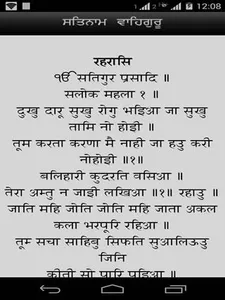 12:08
ਸਤਿਨਾਮ ਵਾਹਿਗੁਰੂ
रहरासि
ੴ सतिगुर प्रसादि ॥
सलोक महला १ ॥
दुखु दारू सुखु रोगु भइआ जा सुखु
तामि नो होई ॥
तूम करता करणा मै नाही जा हउ करी
नोहोई ॥१॥
बलिहारी कुदरति वसिआ ॥
तेरा अम्तु न जाई लखिआ ॥१॥ रहाउ ॥
जाति महि जोति जोति महि जाता अकल
कला भरपूरि रहिआ ॥
तूम सचा साहिबु सिफति सुआलिऊउ
जिनि
कीती सो पारि पइआ ॥